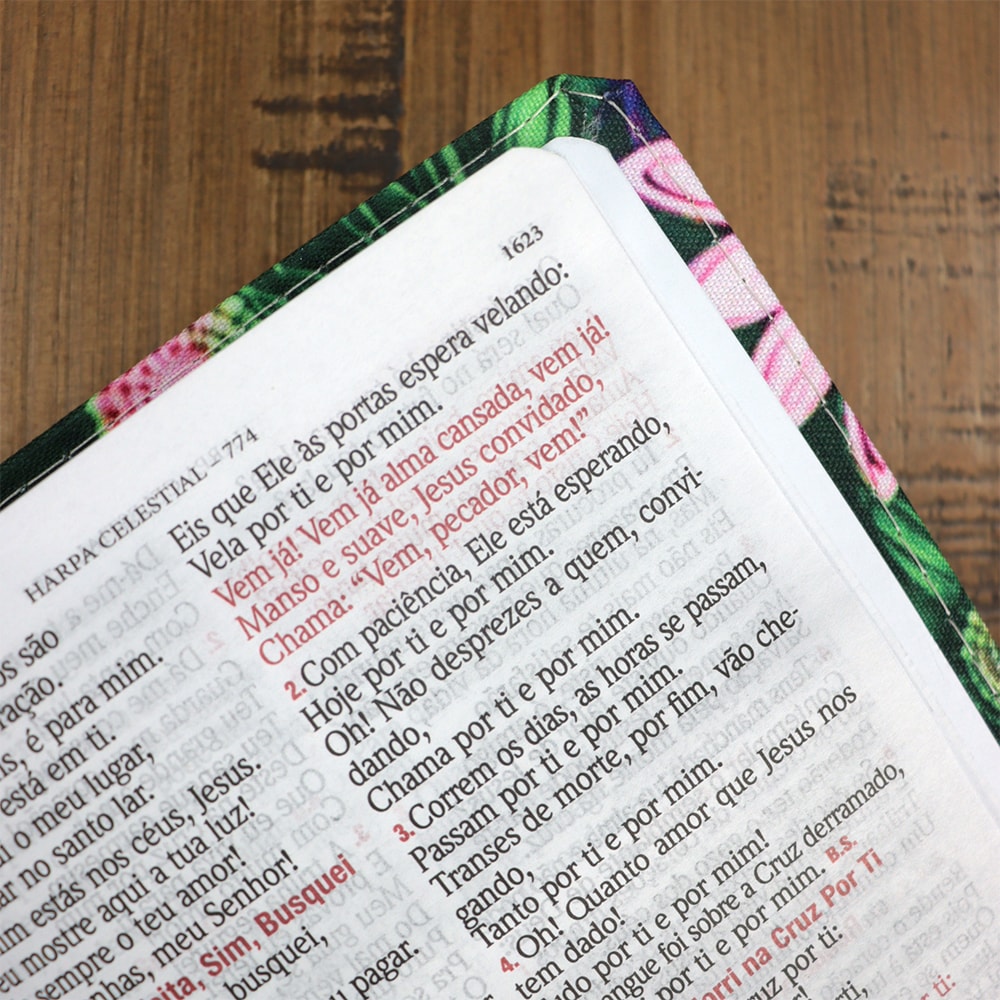 HARPA CELESTIAL – 774
1623
são
é para mim.
está em ti.
o meu lugar,
no santo lar.
estás nos céus, Jesus.
mostre aqui a tua luz!
sempre o teu amor!
meu Senhor!
Sim, Busquei
busquei,
pagar.
Eis que Ele às portas espera velando:
Vela por ti e por mim.
Vem já! Vem já alma cansada, vem já!
Manso e suave, Jesus convidado,
Chama: “Vem, pecador, vem!”
2. Com paciência, Ele está esperando,
Hoje por ti e por mim.
Oh! Não desprezes a quem, convi-
dando,
Chama por ti e por mim.
3. Correm os dias, as horas se passam,
Passam por ti e por mim.
Transes de morte, por fim, vão che-
gando,
Tanto por ti e por mim.
4. Oh! Quanto amor que Jesus nos
tem dado!
por ti e por mim!
foi sobre a Cruz derramado,
por ti e por mim.
B.S.
na Cruz Por Ti
cruz por ti:
ti,
ti: